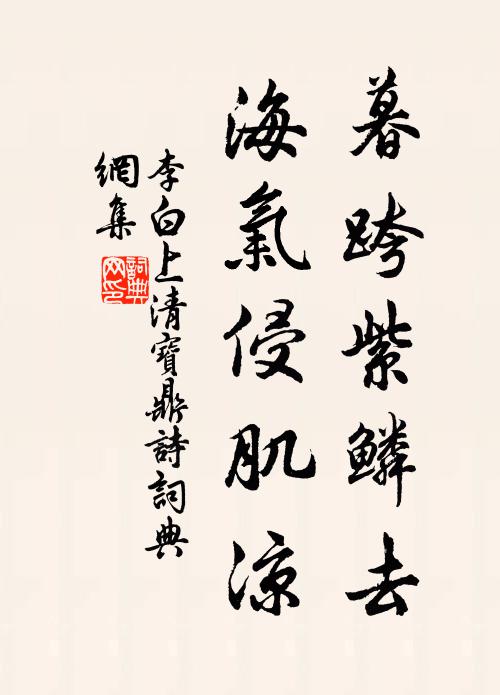 暮跨紫鱗去
海氣侵肌凉
李白上清寶鼎詩詞典
網集
詞典
网印